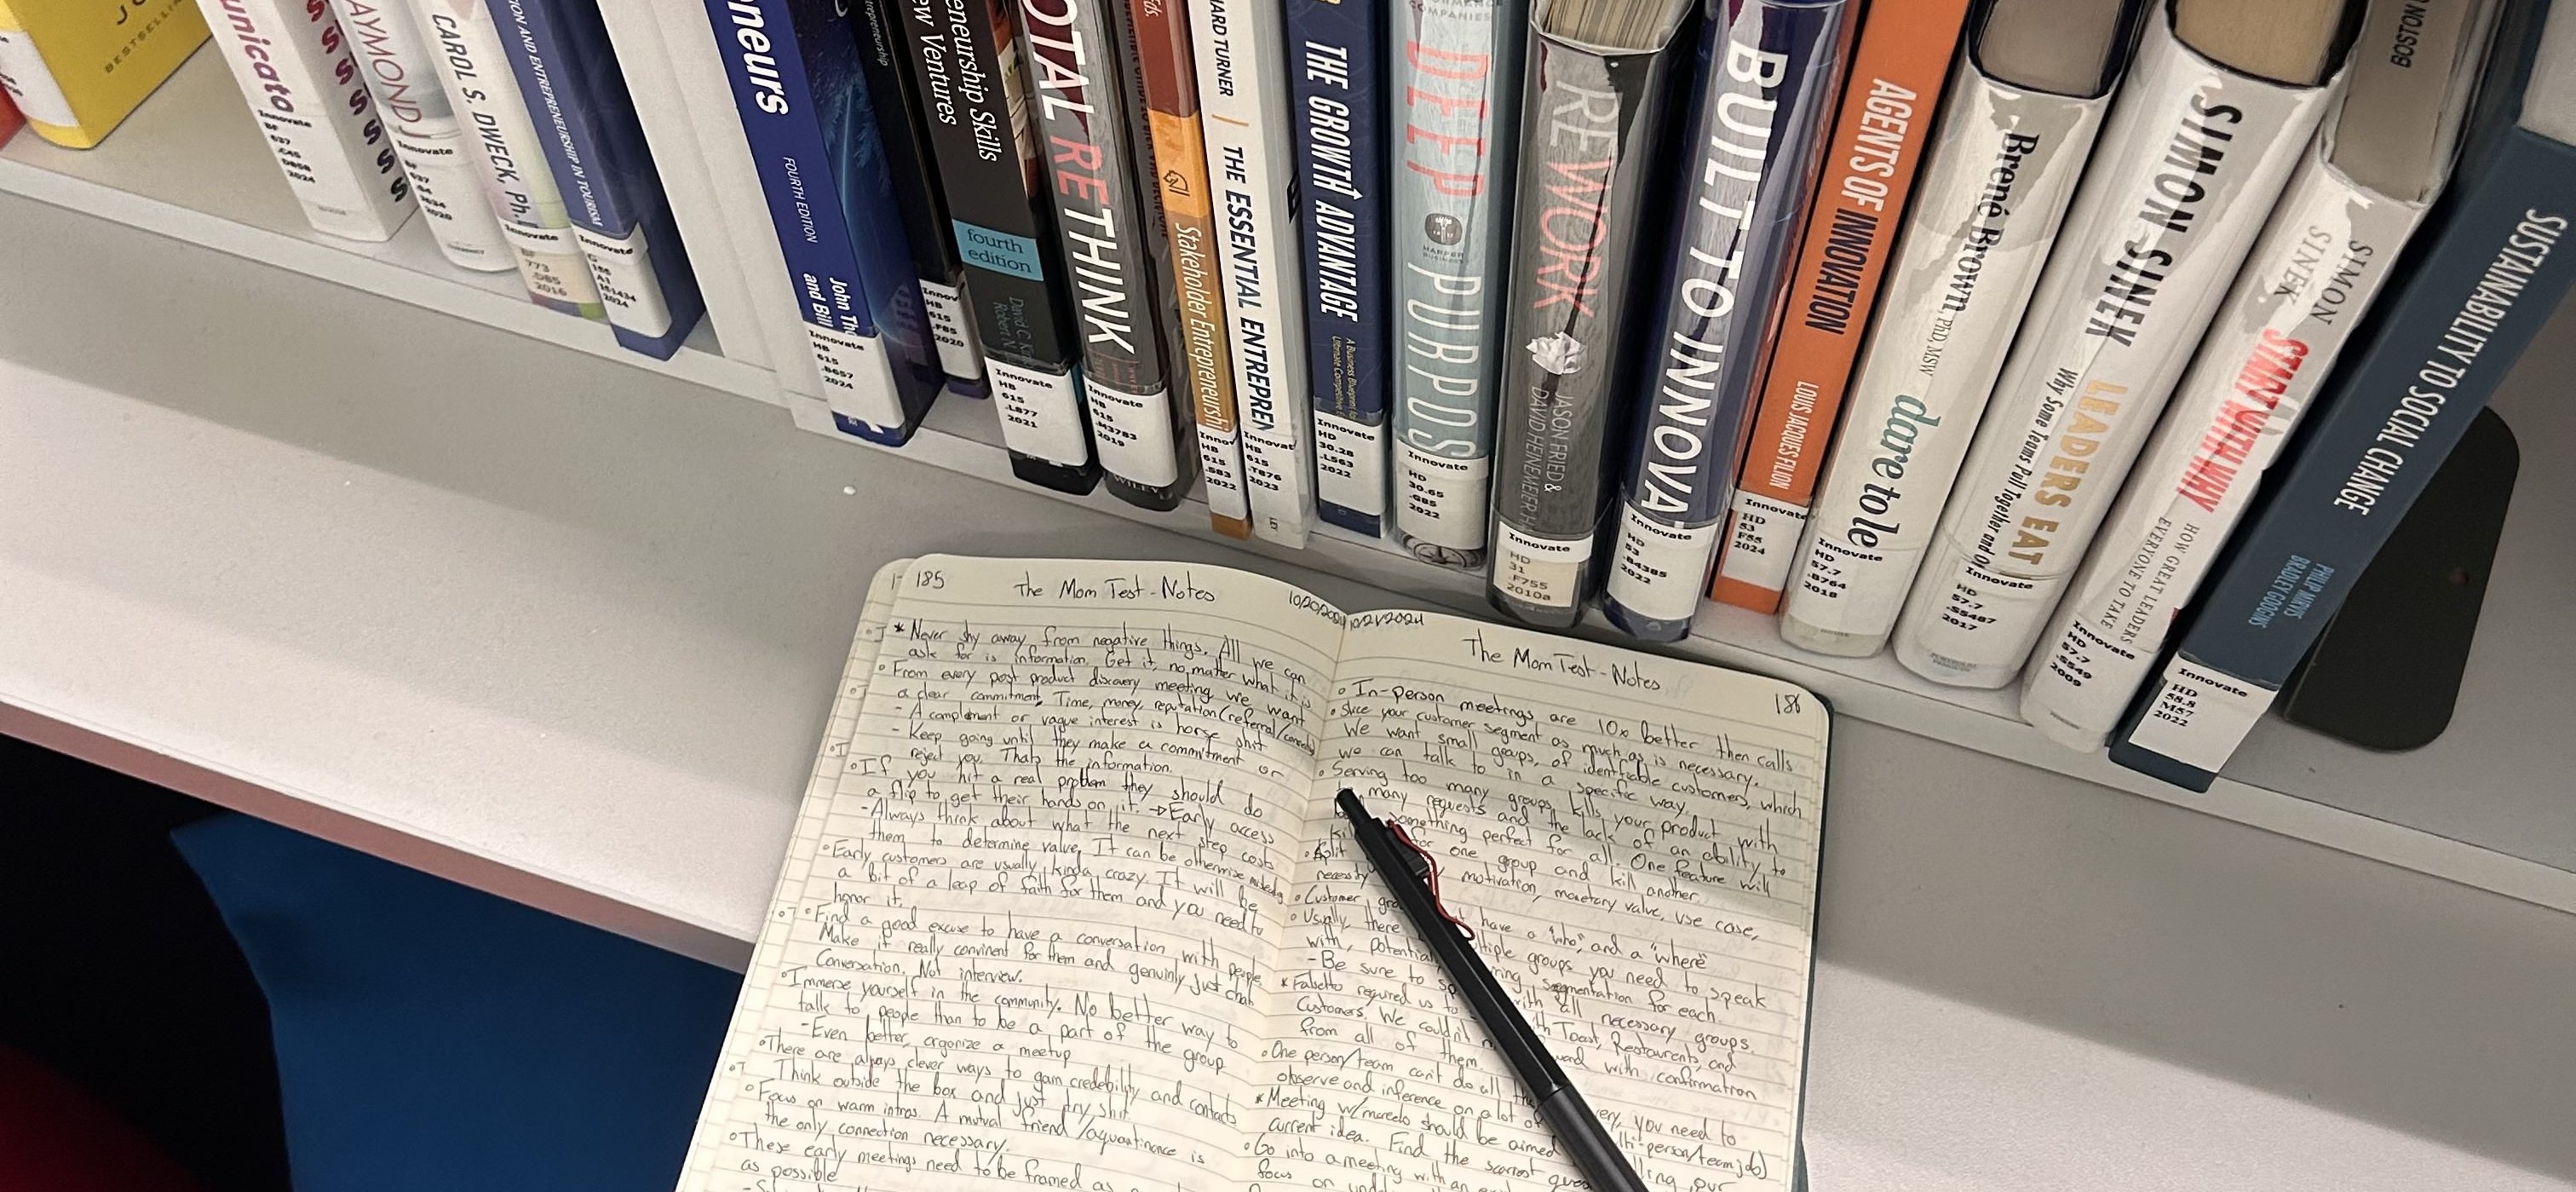 BESTSELLIN
unicato
Innovate
BF
637
.C45
D858
2024
SSSSSSSS
AYMOND
Innovate
BF
637
2020
CAROL S. DWECK, Ph.
Innovate
BF
773
.D85
2016
ION AND ENTREPRENEURSHIP IN TOURISM
Innovate
G
155
.A1
2024
neurs
FOURTH EDITION
John Th
and Bill
Innovate
HB
615
.B657
2024
trepreneurship
Innov
HB
615
.F85
2020
eneurship Skills
ew Ventures
fourth
edition
Innovate
HB
615
.L877
2021
OTAL RETHINK
Innovate
HB
615
.M3783
2019
WILEY
Stakeholder Entrepreneurshi
Innov
HB
615
.S83
2022
HARD TURNER
THE ESSENTIAL ENTREPREN
Innovat
HB
615
.T876
2023
THE GROWTH ADVANTAGE
A Business Blueprint
Ultimate Competitive
Innovate
HD
30.28
.L563
2022
COMPANIES
DEEP PURPOS
HARPER
BUSINESS
Innovate
HD
30.65
.G85
2022
REWORK
JASON FRIED &
DAVID HEINEMEIER H
Innovate
HD
31
.F755
2010a
BUILT TO INNOVA
Innovate
HD
53
.B4385
2022
AGENTS OF INNOVATION
LOUIS JACQUES FILION
Innovate
HD
53
F55
2024
Brené Brown, PhD, MSW
dare to le
Innovate
HD
57.7
.B764
2018
SIMON SINEK
LEADERS EAT
Why Some Teams Pull Together and O
Innovate
HD
57.7
.S5487
2017
BOSTON
SIMON
SINEK
START WITH WHY
HOW GREAT LEADERS
EVERYONE TO TAKE
Innovate
HD
57.7
.S549
2009
SUSTAINABILITY TO SOCIAL CHANGE
PHILIP MIRVIS
BRADLEY GOOGINS
Innovate
HD
58.8
M57
2022
185
The Mom Test - Notes
10/20/2024
* Never shy away from negative things. All we can
ask for is information. Get it, no matter what it is
From every post product discovery meeting we want
a clear commitment, Time, money, reputation (referral/
- A complement or vague interest is horse shit
- Keep going until they make a commitment or
reject you. Thats the information.
If you hit a real problem they should do
a flip to get their hands on it. → Early access
- Always think about what the next step costs
them to determine value. It can be otherwise
Early customers are usually kinda crazy. It will be
a bit of a leap of faith for them and you need to
honor it.
Find a good excuse to have a conversation with people
Make it really convinent for them and genuinly just chat
Conversation. Not interview.
Immerse yourself in the community. No better way to
talk to people than to be a part of the group
- Even better, organize a meetup
There are always clever ways to gain credebility and contacts
Think outside the box and just try shit.
Focus on warm intros. A mutual friend/aquaintinance is
the only connection necessary.
These early meetings need to be framed as
as possible
10/21/2024
The Mom Test - Notes
186
In-person meetings are 10x better then calls
Slice your customer segment as much as is necessary.
We want small groups, of identifiable customers, which
we can talk to in a specific way.
Serving too many groups kills your product with
many requests and the lack of an ability to
something perfect for all. One feature will
for one group and kill another
Split motivation, monetary value, use case,
necessity
Customer have a "who", and a "where"
Usually, there multiple groups you need to speak
with, potential
- Be sure to segmentation for each.
* Falsetto required us to with all necessary groups.
Customers, We couldn't with Toast, Restaurants, and
from all of them with confirmation
One person/team can't do all the you need to
observe and inference on a lot of person/team job)
* Meeting w/marcelo should be aimed
current idea. Find the scariest
Go into a meeting with an
focus on